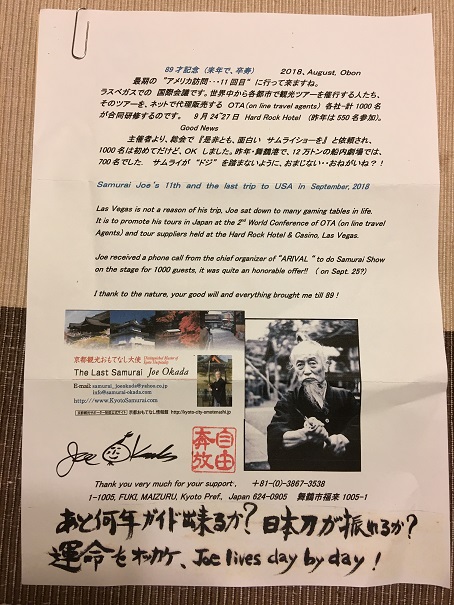 89才記念（来年で、卒寿）　2018、August, Obon
最期の “アメリカ訪問･･･11回目” に行って来ますね。
ラスベガスでの 国際会議です。世界中から各都市で観光ツアーを催行する人たち、
そのツアーを、ネットで代理販売する OTA（on line travel agents）各社・計 1000名
が合同研修するのです。 9月24~27日 Hard Rock Hotel （昨年は 550名参加）。
Good News
主催者より、総会で『是非とも、面白い サムライショーを』と依頼され、
1000名は初めてだけど、OK しました。昨年・舞鶴港で、12万トンの船内劇場では、
700名でした。 サムライが “ドジ” を踏まないように、おまじない･･おねがいね？！
Samurai Joe's 11th and the last trip to USA in September, 2018
Las Vegas is not a reason of his trip, Joe sat down to many gaming tables in life.
It is to promote his tours in Japan at the 2nd World Conference of OTA (on line travel
Agents) and tour suppliers held at the Hard Rock Hotel & Casino, Las Vegas.
Joe received a phone call from the chief organizer of “ARIVAL ” to do Samurai Show
on the stage for 1000 guests, it was quite an honorable offer!! ( on Sept. 25?)
I thank to the nature, your good will and everything brought me till 89 !
京都観光おもてなし大使
The Last Samurai Joe Okada
E-mail samurai_joeokada@yahoo.co.jp
info@samurai-okada.com
http://www.KyotoSamurai.com
京都おもてなし情報館 http://kyoto-city-omotenashi.jp
Joe Okada
自由
奔放
Thank you very much for your support , +81-(0)-3867-3538
1-1005, FUKI, MAIZURU, Kyoto Pref., Japan 624-0905 舞鶴市福来 1005-1
あと何年ガイド出来るか？日本刀が振れるか？
運命をオッカケ、Joe lives day by day！